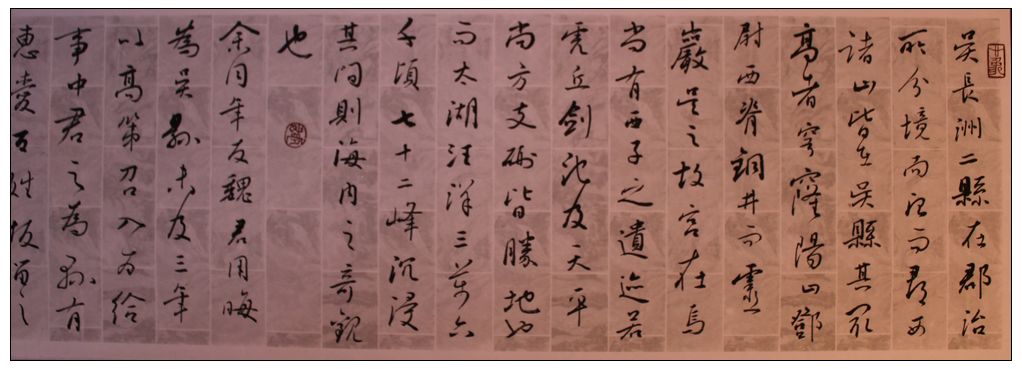 吳長洲二縣在郡治
所分境而治而郡西
諸山皆在吳縣其最
高者穹窿陽山鄧
尉西脊銅井而靈
巖吳之故宮在焉
尚有西子之遺迹若
虎丘劍池及天平
尚方支硎皆勝地也
而太湖汪洋三萬六
千頃七十二峰沉浸
其間則海內之奇觀
也
余同年友魏君用晦
為吳縣未及三年
以高第召入為給
事中君之為縣有
惠愛百姓扳留之